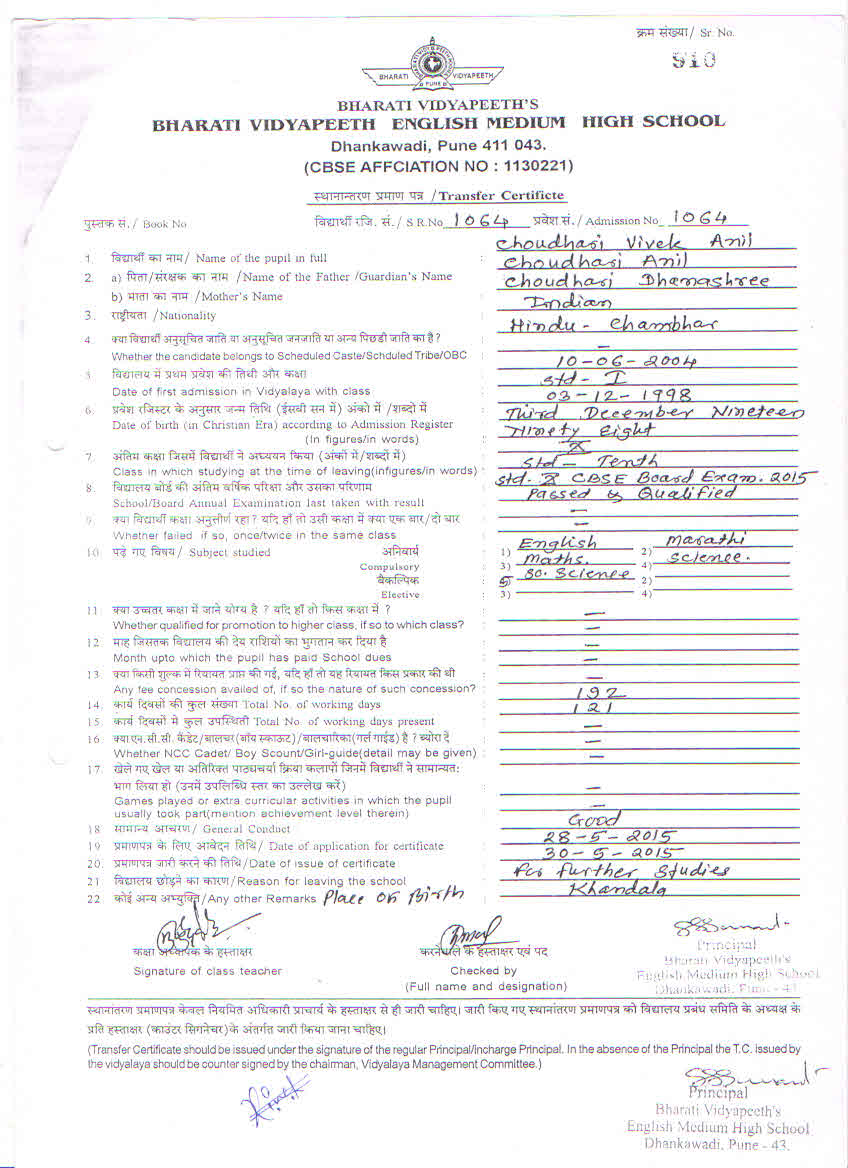 क्रम संख्या/ Sr. No.
910
BHARATI VIDYAPEETH
PUNE
BHARATI VIDYAPEETH'S
BHARATI VIDYAPEETH ENGLISH MEDIUM HIGH SCHOOL
Dhankawadi, Pune 411 043.
(CBSE AFFCIATION NO : 1130221)
स्थानान्तरण प्रमाण पत्र /Transfer Certificte
पुस्तक सं./ Book No विद्यार्थी रजि. सं./ S R.No 1064 प्रवेश सं./ Admission No 1064
1. विद्यार्थी का नाम/ Name of the pupil in full : Choudhari Vivek Anil
2. a) पिता/संरक्षक का नाम /Name of the Father /Guardian's Name Choudhari Anil
b) माता का नाम /Mother's Name Choudhari Dhanashree
3. राष्ट्रीयता /Nationality Indian
4. क्या विद्यार्थी अनुसूचित जाति या अनुसूचित जनजाति या अन्य पिछडी जाति का है? Hindu - Chambhar
Whether the candidate belongs to Scheduled Caste/Schduled Tribe/OBC : –
विद्यालय में प्रथम प्रवेश की तिथी और कक्षा 10-06-2004
Date of first admission in Vidyalaya with class std - I
6. प्रवेश रजिस्टर के अनुसार जन्म तिथि (ईसवी सन में) अंको में /शब्दो में 03-12-1998
Date of birth (in Christian Era) according to Admission Register Third December Nineteen
(In figures/in words) Ninety Eight
7. अंतिम कक्षा जिसमें विद्यार्थी ने अध्ययन किया (अंकों में/शब्दों में) X
Class in which studying at the time of leaving(infigures/in words) : Std – Tenth
8. विद्यालय बोर्ड की अंतिम वर्षिक परिक्षा और उसका परिणाम std. X CBSE Board Exam. 2015
School/Board Annual Examination last taken with result Passed & Qualified
9. क्या विद्यार्थी कक्षा अनुत्तीर्ण रहा? यदि हाँ तो उसी कक्षा में क्या एक बार/दो बार –
Whether failed if so, once/twice in the same class –
10. पढ़े गए विषय/ Subject studied अनिवार्य 1) English 2) Marathi
Compulsory 3) Maths. 4) Science.
वैकल्पिक 5 So. Science 2)
Elective 3) 4)
11. क्या उच्चतर कक्षा में जाने योग्य है ? यदि हाँ तो किस कक्षा में ? –
Whether qualified for promotion to higher class, if so to which class? –
12. माह जिसतक विद्यालय की देय राशियों का भुगतान कर दिया है –
Month upto which the pupil has paid School dues –
13. क्या किसी शुल्क में रियायत प्राप्त की गई, यदि हाँ तो यह रियायत किस प्रकार की थी –
Any fee concession availed of, if so the nature of such concession? : –
14. कार्य दिवसों की कुल संख्या Total No. of working days 192
15. कार्य दिवसों मे कुल उपस्थिती Total No. of working days present 121
16 क्या एन.सी.सी. कैडेट/बालचर(बॉय स्काऊट)/बालचारिका(गर्ल गाईड) है ? ब्योरा दें –
Whether NCC Cadet/ Boy Scount/Girl-guide(detail may be given) : –
17. खेले गए खेल या अतिरिक्त पाठ्यचर्या क्रिया कलापों जिनमें विद्यार्थी ने सामान्यतः
भाग लिया हो (उनमें उपलिब्धि स्तर का उल्लेख करें)
Games played or extra curricular activities in which the pupil –
usually took part(mention achievement level therein) –
18 सामान्य आचरण/ General Conduct Good
19 प्रमाणपत्र के लिए आवेदन तिथि/ Date of application for certificate 28-5-2015
20. प्रमाणपत्र जारी करने की तिथि/Date of issue of certificate 30-5-2015
21 विद्यालय छोड़ने का कारण/Reason for leaving the school For further Studies
22 कोई अन्य अभ्युक्ति/Any other Remarks Place of Birth Khandala
कक्षा अध्यापक के हस्ताक्षर
Signature of class teacher
करनेवाले के हस्ताक्षर एवं पद
Checked by
(Full name and designation)
Principal
Bharati Vidyapeeth's
English Medium High School
Dhankawadi, Pune - 43
स्थानांतरण प्रमाणपत्र केवल नियमित अधिकारी प्राचार्य के हस्ताक्षर से ही जारी चाहिए। जारी किए गए स्थानांतरण प्रमाणपत्र को विद्यालय प्रबंध समिति के अध्यक्ष के
प्रति हस्ताक्षर (काउंटर सिगनेचर)के अंतर्गत जारी किया जाना चाहिए।
(Transfer Certificate should be issued under the signature of the regular Principal/Incharge Principal. In the absence of the Principal the T.C. issued by
the vidyalaya should be counter signed by the chairman, Vidyalaya Management Committee.)
Principal
Bharati Vidyapeeth's
English Medium High School
Dhankawadi, Pune - 43.